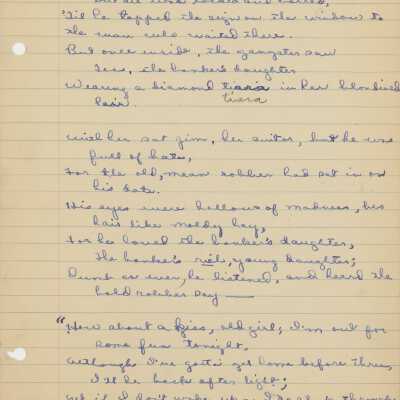 'Til he tapped the sign on the window to
the man who waited there.
But once inside, the gangster saw
Tess, the banker's daughter
Wearing a diamond tiara in her blondined
hair. tiara
With her sat Jim, her suitor, but he was
full of hate,
For the old, mean robber had sat in on
his date.
His eyes were hollows of madness, his
hair like moldy hay,
For he loved the banker's daughter,
the banker's rich, young daughter;
Dumb as ever, he listened, and heard the
bold robber say —
"How about a kiss, old girl, I'm out for
some fun tonight,
Although I've gotta get home before three,
I'll be back after light;